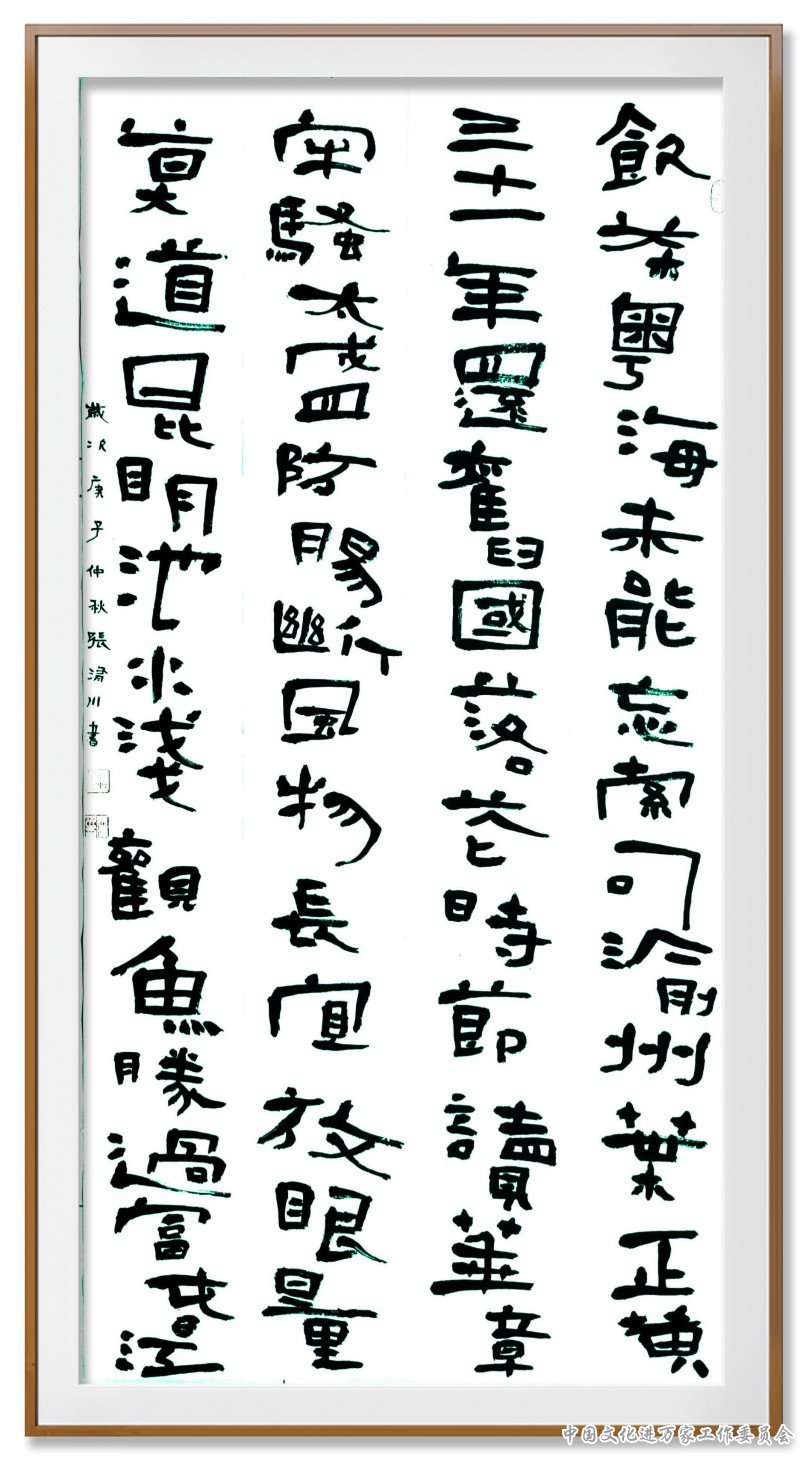 飲茶粵海未能忘索句渝州葉正黃
三十一年還舊國落花時節讀華章
牢騷太盛防腸斷風物長宜放眼量
莫道昆明池水淺觀魚勝過富春江
歲次庚子仲秋張川書
中国文化进万家工作委员会